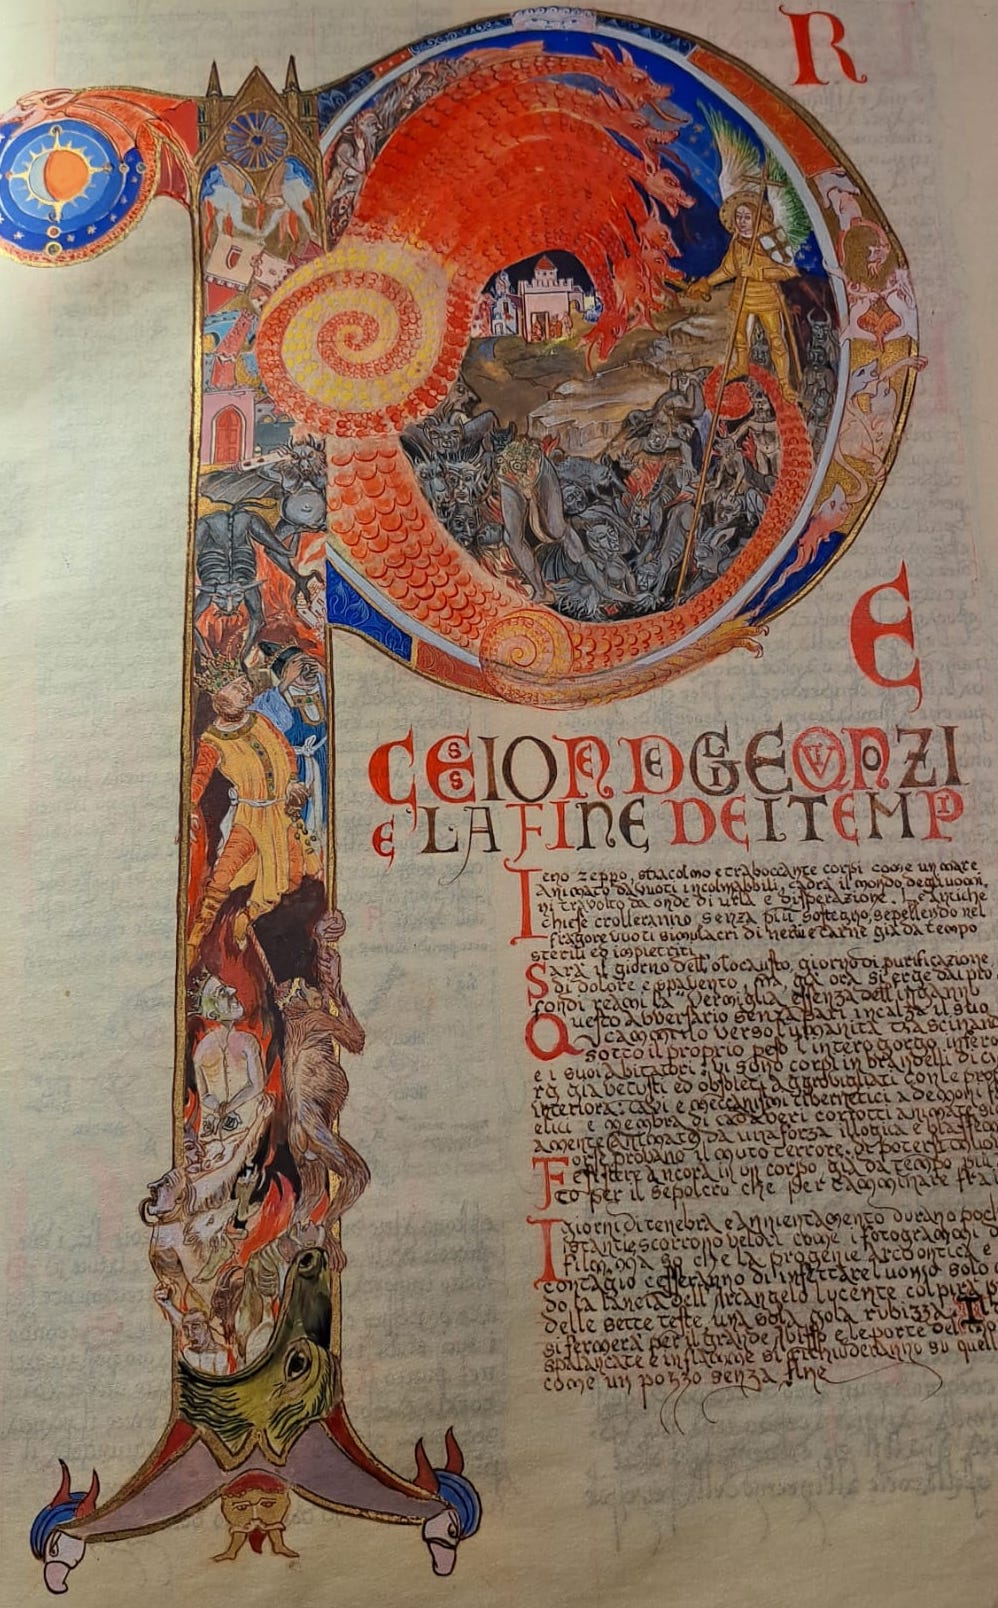 P
R
E
CESSION DEGLI EQVINOZI
E LA FINE DEI TEMPI
Ieno zeppo, straccolmo e traboccante corpi come un mare
Animato da vuoti incolmabili, cadrà il mondo degli uomi,
ni travolto da onde di urla e disperazione. Le antiche
chiese crolleranno senza più sostegno, seppellendo nel
fragore vuoti simulacri di nervi e carne già da tempo
sterili ed impietriti.
Sarà il giorno dell'olocausto, giorno di purificazione,
di dolore e spavento, ma, già ora si erge dai pro
fondi reami la "Vermiglia essenza dell'inganno
Questo avversario senza pari incalza il suo
cammino verso l'umanità trascinan
sotto il proprio peso l'intero gorgo infero
e i suoi abitatori: vi sono corpi in brandelli di
già vetusti ed obsoleti aggrovigliati con le
interiora: cavi e meccanismi cibernetici a demoni
e membra di cadaveri corrotti animate
amente (animate) da una forza illogica e blasfem
Forse provano il muto terrore di poter
esistere ancora in un corpo, già da tempo più
to per il sepolcro che per camminare fra i
I giorni di tenebra e annientamento durano poch
istanti e scorrono veloci come i fotogrammi d
film. Ma so che la progenie arcontica e
contagio cesseranno di infettare l'uomo solo
do la lancia dell'Arcangelo lucente colpirà
delle sette teste, una sola gola rubizza. Il
si fermerà per il grande Abisso e le porte del
spalancate e in fiamme si richiuderanno su quell
come un pozzo senza fine